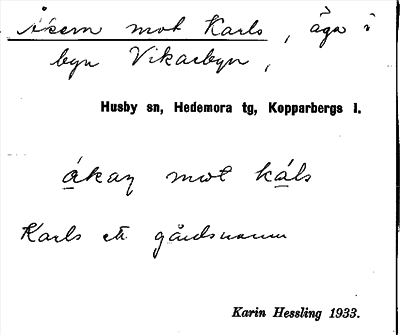 Åkern mot Karls, äga i
byn Vikarbyn,
Husby sn, Hedemora tg, Kopparbergs l.
åkaṇ mot kàls
Karls ett gårdsnamn
Karin Hessling 1933.